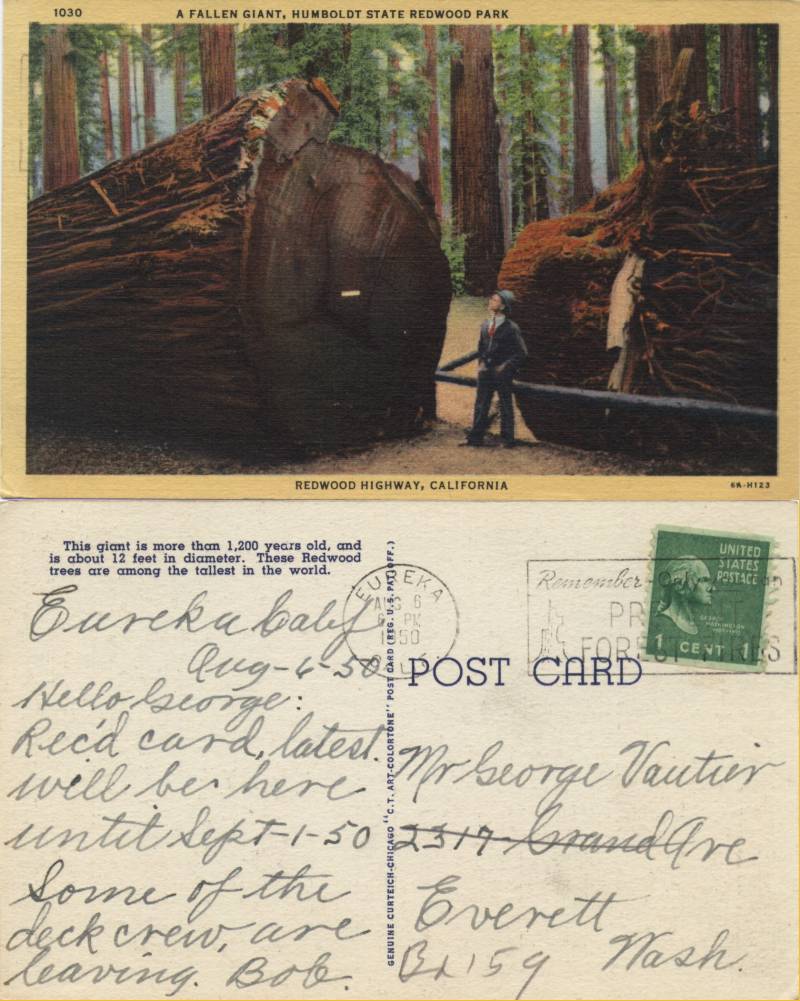 1030
A FALLEN GIANT, HUMBOLDT STATE REDWOOD PARK
REDWOOD HIGHWAY, CALIFORNIA
6A-H123
This giant is more than 1,200 years old, and
is about 12 feet in diameter. These Redwood
trees are among the tallest in the world.
Eureka Calif
Aug-6-50
Hello George:
Rec'd card, latest.
will be here
until Sept-1-50
Some of the
deck crew, are
leaving. Bob.
GENUINE CURTEICH-CHICAGO "C.T. ART-COLORTONE" POST CARD (REG. U.S. PAT. OFF.)
EUREKA
AUG 6
PM
1950
CALIF.
Remember-Only
PR
FOREST FIRES
UNITED
STATES
POSTAGE
GEORGE
WASHINGTON
1 CENT 1
POST CARD
Mr George Vautier
2317 Grand Ave
Everett
Bx 159 Wash.